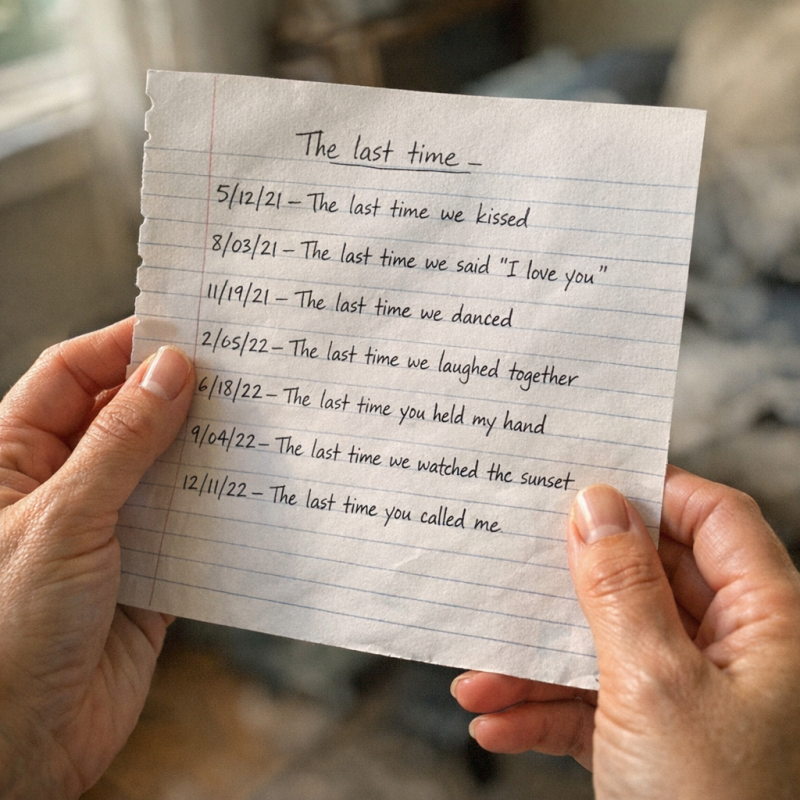 The last time –
5/12/21 – The last time we kissed
8/03/21 – The last time we said "I love you"
11/19/21 – The last time we danced
2/05/22 – The last time we laughed together
6/18/22 – The last time you held my hand
9/04/22 – The last time we watched the sunset
12/11/22 – The last time you called me.